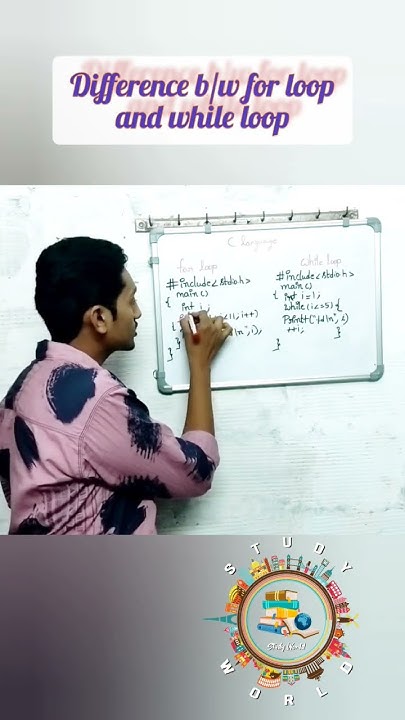 Difference b/w for loop
and while loop
C language
for loop
#include<stdio.h>
main()
{
int i;
i++)
{
\n",i);
}
}
while loop
#include<stdio.h>
main()
{ int i=1;
while(i<=5) {
Printf("%d\n",i)
++i; }
}
STUDY
Study World
WORLD